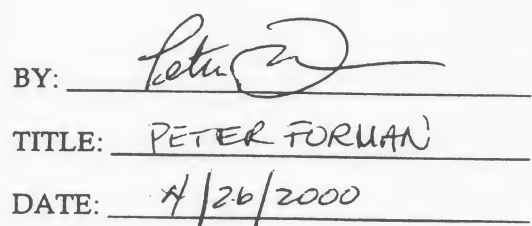 BY: Peter
TITLE: PETER FORMAN
DATE: 4/26/2000